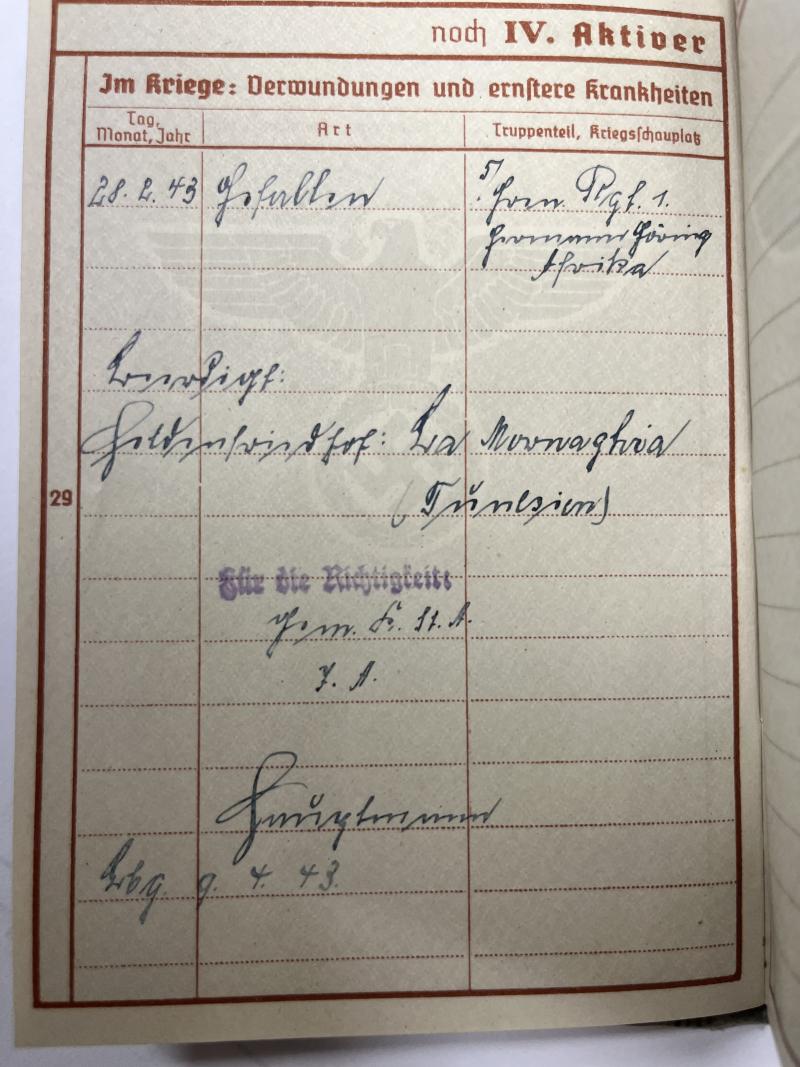 noch IV. Aktiver
Im Kriege: Verwundungen und ernstere Krankheiten
Tag, Monat, Jahr
Art
Truppenteil, Kriegsschauplatz
28. 2. 43 Gefallen 5/ Gren. Rgt. 1.
Hermann Göring
Afrika
Beerdigt:
Heldenfriedhof: La Mornaghia
(Tunesien)
29
Für die Richtigkeit:
gem. K. St. A.
I. A.
Hauptmann
9. 4. 43.